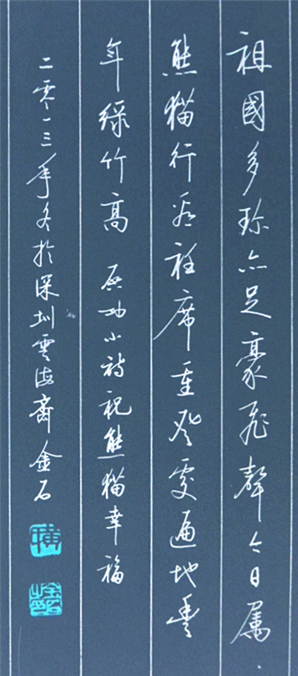 祖國多珍亦足豪飛聲今日屬
熊貓行看衽席重登處遍地豐
年綠竹高 启功小詩祝熊貓幸福
二零一三年冬於深圳雲海齋金石